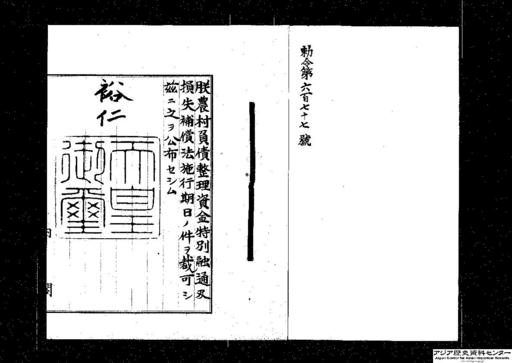 勅令第六百七十七號
朕農村負債整理資金特別融通及
損失補償法施行期日ノ件ヲ裁可シ
茲ニ之ヲ公布セシム
裕仁
天皇
御璽
内閣
アジア歴史資料センター
Japan Center for Asian Historical Records